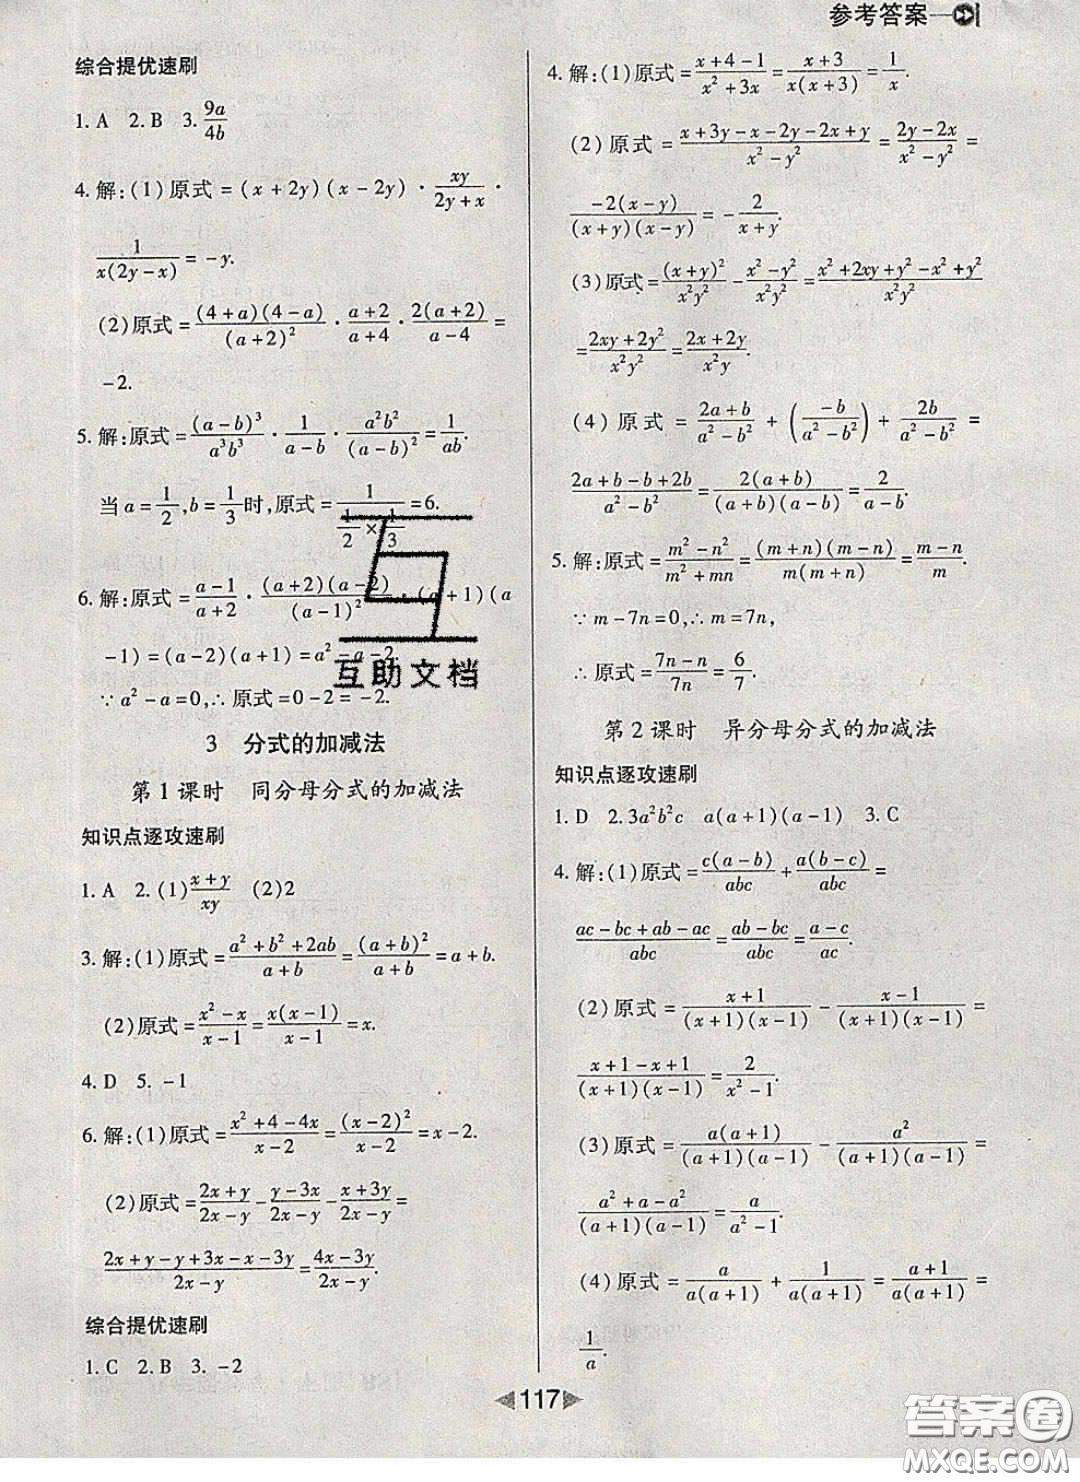 参考答案
综合提优速刷
1. A 2. B 3. 9a/4b
4. 解:(1)原式=(x+2y)(x-2y)·xy/(2y+x)·
1/(x(2y-x))=-y.
(2)原式=(4+a)(4-a)/(a+2)²·(a+2)/(a+4)·2(a+2)/(a-4)=
-2.
5. 解:原式=(a-b)³/(a³b³)·1/(a-b)·a²b²/(a-b)²=1/(ab).
当a=1/2,b=1/3时,原式=1/(1/2×1/3)=6.
6. 解:原式=(a-1)/(a+2)·(a+2)(a-2)/(a-1)²·(a+1)(a
-1)=(a-2)(a+1)=a²-a-2.
∵a²-a=0,∴原式=0-2=-2.
3 分式的加减法
第1课时 同分母分式的加减法
知识点逐攻速刷
1. A 2. (1)(x+y)/(xy) (2)2
3. 解:(1)原式=(a²+b²+2ab)/(a+b)=(a+b)²/(a+b)=a+b.
(2)原式=(x²-x)/(x-1)=x(x-1)/(x-1)=x.
4. D 5. -1
6. 解:(1)原式=(x²+4-4x)/(x-2)=(x-2)²/(x-2)=x-2.
(2)原式=(2x+y)/(2x-y)-(y-3x)/(2x-y)-(x+3y)/(2x-y)=
(2x+y-y+3x-x-3y)/(2x-y)=(4x-3y)/(2x-y).
综合提优速刷
1. C 2. B 3. -2
4. 解:(1)原式=(x+4-1)/(x²+3x)=(x+3)/(x(x+3))=1/x.
(2)原式=(x+3y-x-2y-2x+y)/(x²-y²)=(2y-2x)/(x²-y²)=
-2(x-y)/((x+y)(x-y))=-2/(x+y).
(3)原式=(x+y)²/(x²y²)-(x²-y²)/(x²y²)=(x²+2xy+y²-x²+y²)/(x²y²)
=(2xy+2y²)/(x²y²)=(2x+2y)/(x²y).
(4)原式=(2a+b)/(a²-b²)+(-b/(a²-b²))+2b/(a²-b²)=
(2a+b-b+2b)/(a²-b²)=2(a+b)/((a+b)(a-b))=2/(a-b).
5. 解:原式=(m²-n²)/(m²+mn)=(m+n)(m-n)/(m(m+n))=(m-n)/m.
∵m-7n=0,∴m=7n,
∴原式=(7n-n)/7n=6/7.
第2课时 异分母分式的加减法
知识点逐攻速刷
1. D 2. 3a²b²c a(a+1)(a-1) 3. C
4. 解:(1)原式=c(a-b)/(abc)+a(b-c)/(abc)=
(ac-bc+ab-ac)/(abc)=(ab-bc)/(abc)=(a-c)/(ac).
(2)原式=(x+1)/((x+1)(x-1))-(x-1)/((x+1)(x-1))=
(x+1-x+1)/((x+1)(x-1))=2/(x²-1).
(3)原式=a(a+1)/((a+1)(a-1))-a²/((a+1)(a-1))=
(a²+a-a²)/((a+1)(a-1))=a/(a²-1).
(4)原式=a/(a(a+1))+1/(a(a+1))=(a+1)/(a(a+1))=
1/a.
117
互助文档
答案圈
MXQE.COM